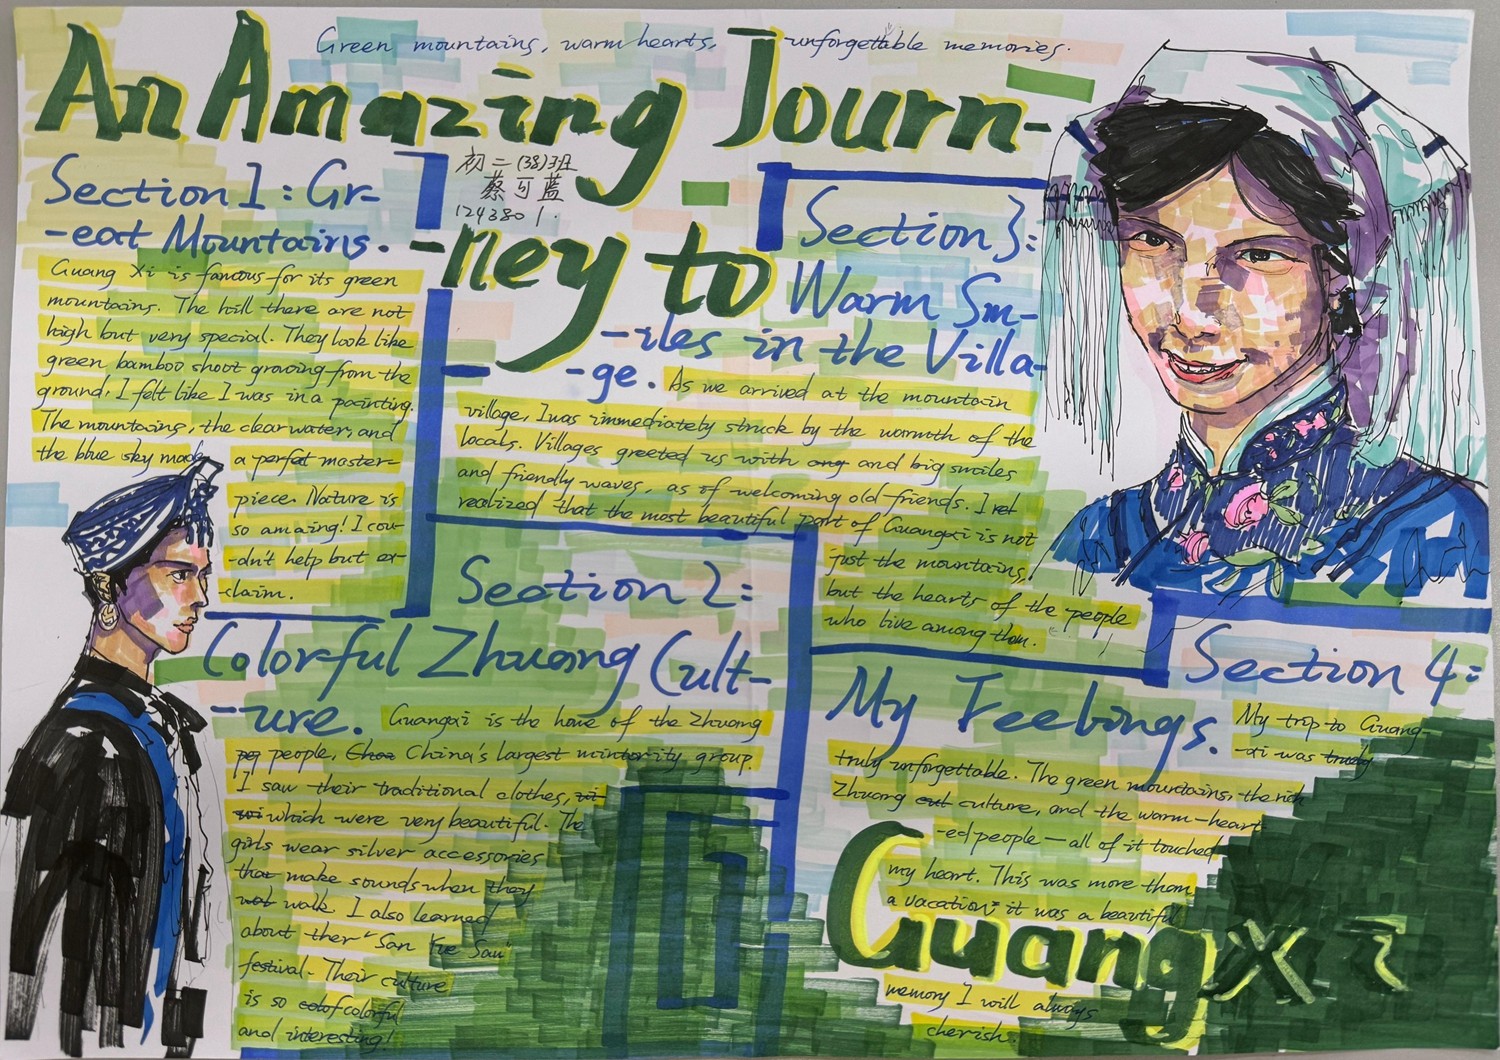 Green mountains, warm hearts, unforgettable memories.
An Amazing Journ-
-ney to
Guangxi
初二(38)班
蔡可蓝
1243801.
Section 1: Gr-
-eat Mountains.
Guang Xi is famous for its green
mountains. The hill there are not
high but very special. They look like
green bamboo shoot growing from the
ground, I felt like I was in a painting.
The mountains, the clear water, and
the blue sky made
a perfect master-
piece. Nature is
so amazing! I cou-
-dn't help but ex-
-claim.
Section 2:
Colorful Zhuang Cult-
-ure.
Guangxi is the home of the Zhuang
people, China's largest minority group.
I saw their traditional clothes,
which were very beautiful. The
girls wear silver accessories
that make sounds when they
walk. I also learned
about ther "San Yue San"
festival. Their culture
is so colorful
and interesting!
Section 3:
Warm Sm-
-iles in the Villa-
-ge.
As we arrived at the mountain
village, I was immediately struck by the warmth of the
locals. Villages greeted us with and big smiles
and friendly waves, as of welcoming old friends. I
realized that the most beautiful part of Guangxi is not
just the mountains,
but the hearts of the people
who live among them.
Section 4:
My Feelings.
My trip to Guang-
-xi was truely
truly unforgettable. The green mountains, the rich
Zhuang culture, and the warm-heart-
-ed people — all of it touched
my heart. This was more than
a vacation; it was a beautiful
memory I will always
cherish.